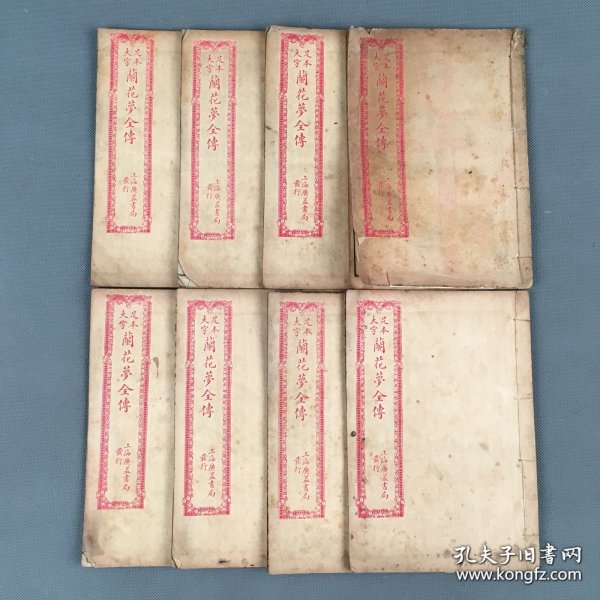 足本
大字
蘭花夢全傳
上海廣益書局
發行
足本
大字
蘭花夢全傳
上海廣益書局
發行
足本
大字
蘭花夢全傳
上海廣益書局
發行
足本
大字
蘭花夢全傳
上海廣益書局
發行
足本
大字
蘭花夢全傳
上海廣益書局
發行
足本
大字
蘭花夢全傳
上海廣益書局
發行
足本
大字
蘭花夢全傳
上海廣益書局
發行
足本
大字
蘭花夢全傳
上海廣益書局
發行
孔夫子旧书网
www.kongfz.com